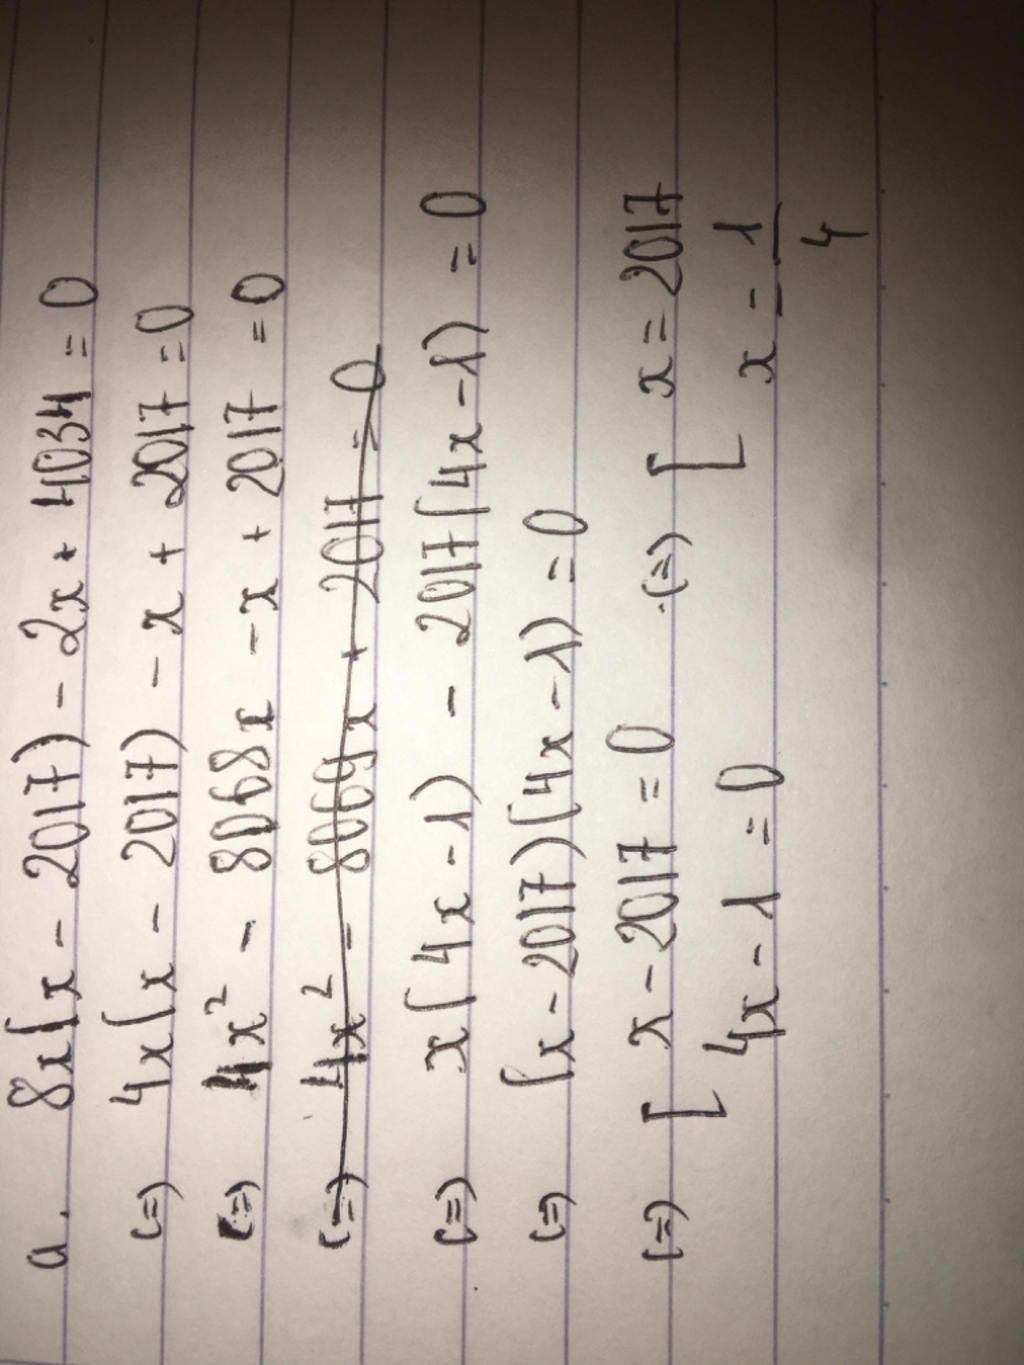 a. 8x(x - 2017) - 2x + 4034 = 0
(=) 4x(x - 2017) - x + 2017 = 0
(=) 4x² - 8068x - x + 2017 = 0
(=) 4x² - 8069x + 2017 = 0
(=) x(4x - 1) - 2017(4x - 1) = 0
(=) (x - 2017)(4x - 1) = 0
(=) [ x - 2017 = 0 (=) [ x = 2017
4x - 1 = 0 x = 1/4